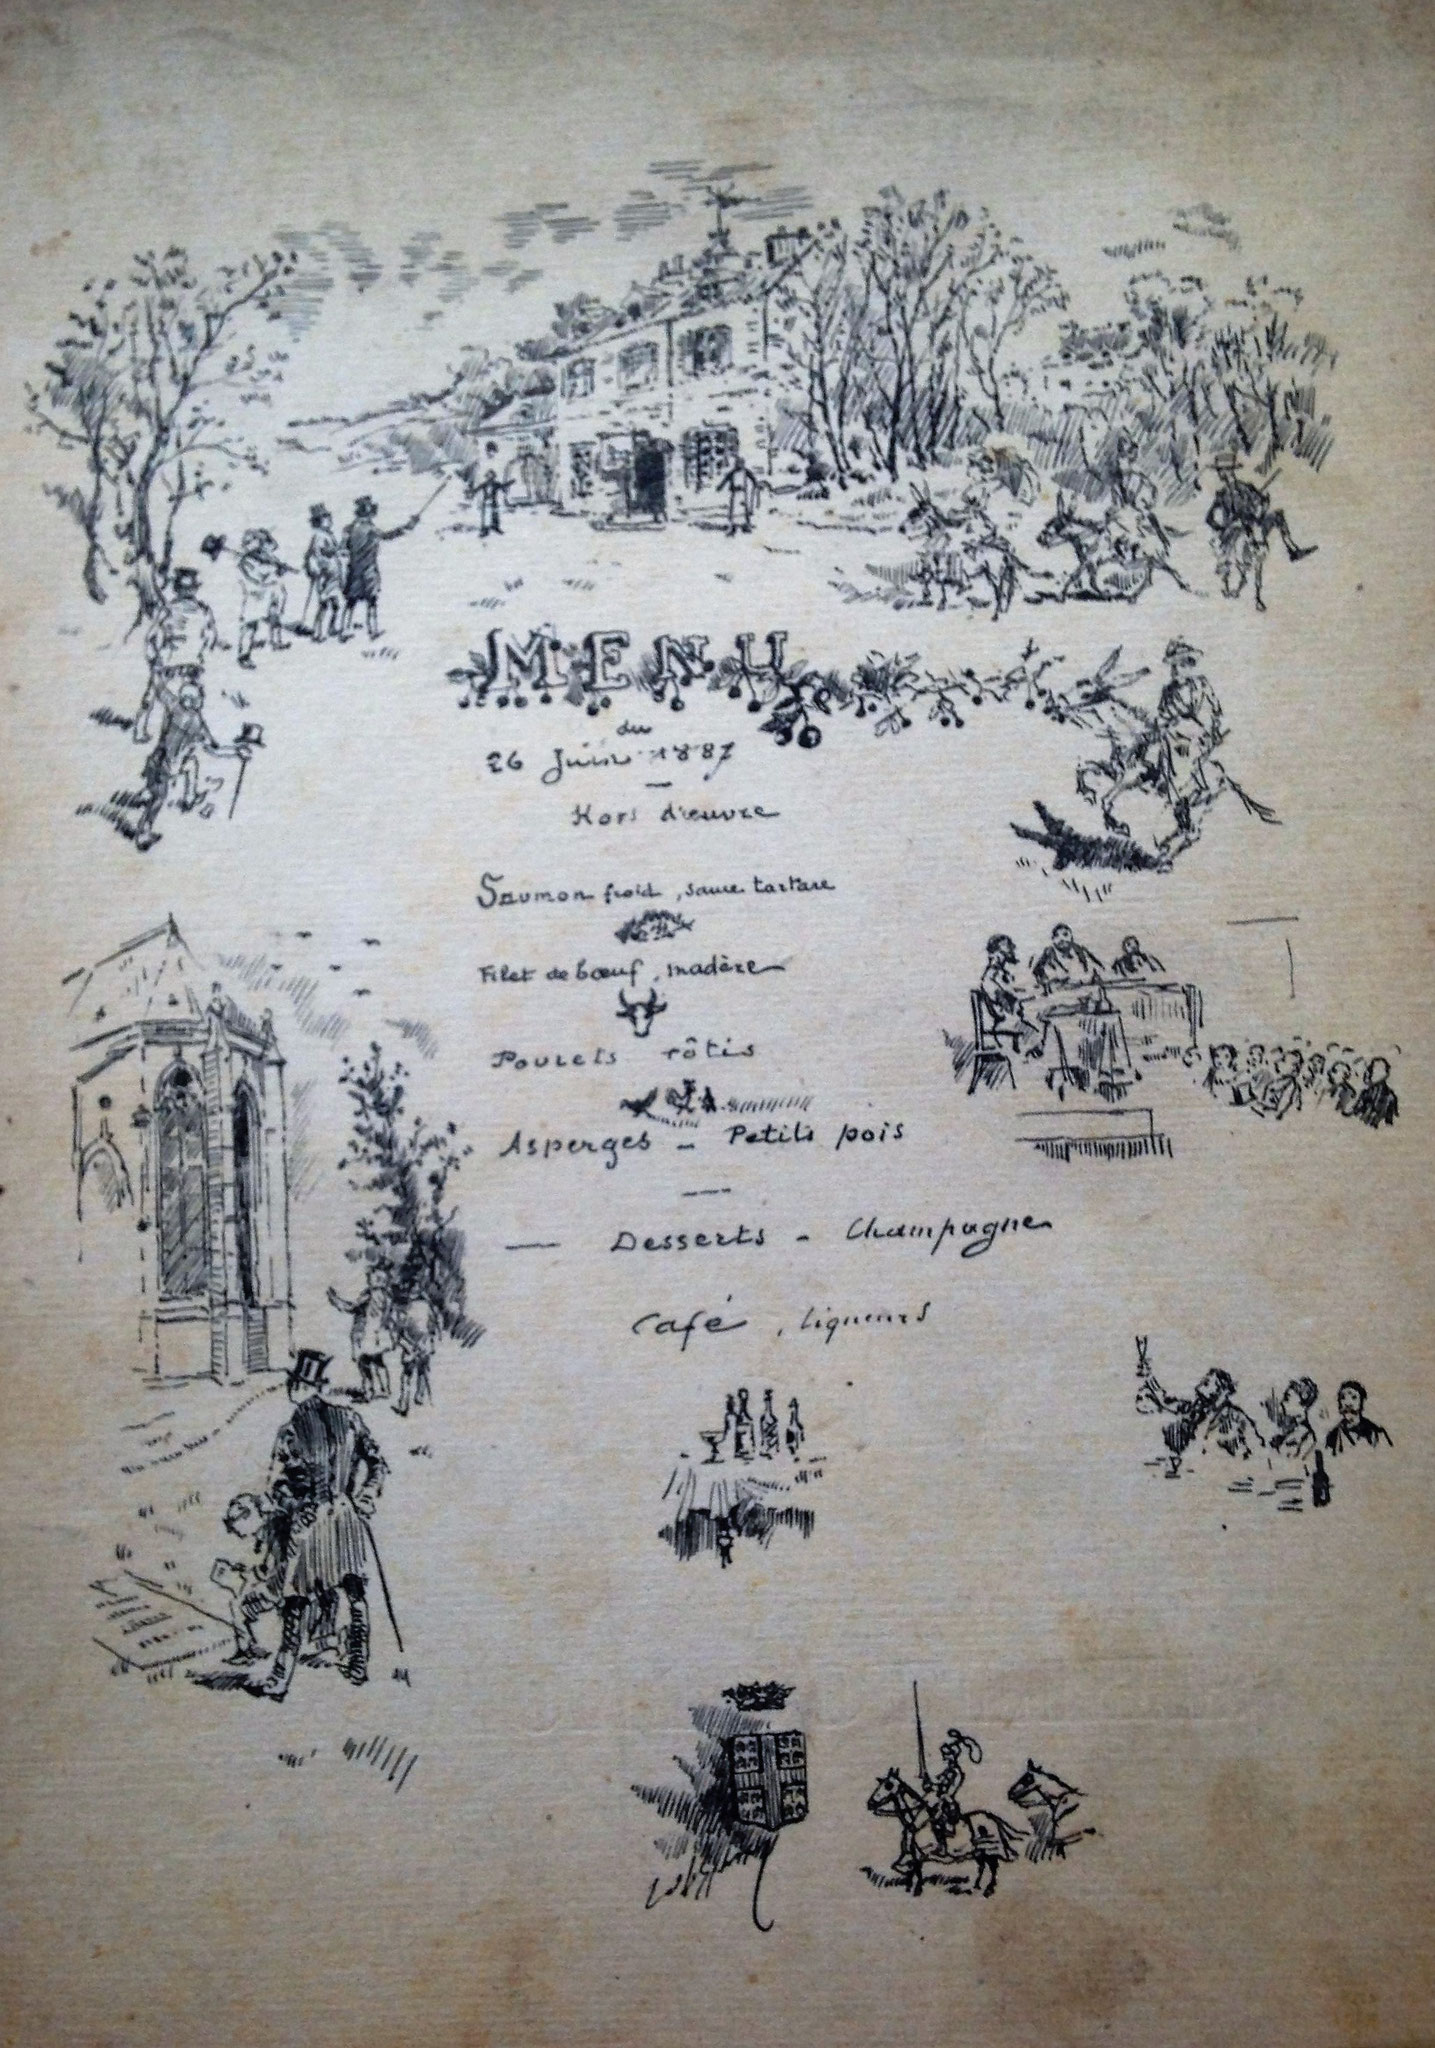 MENU
du
26 Juin 1887
Hors d'œuvre
Saumon froid, sauce tartare
Filet de bœuf, madère
Poulets rôtis
Asperges - Petits pois
Desserts - Champagne
Café, liqueurs